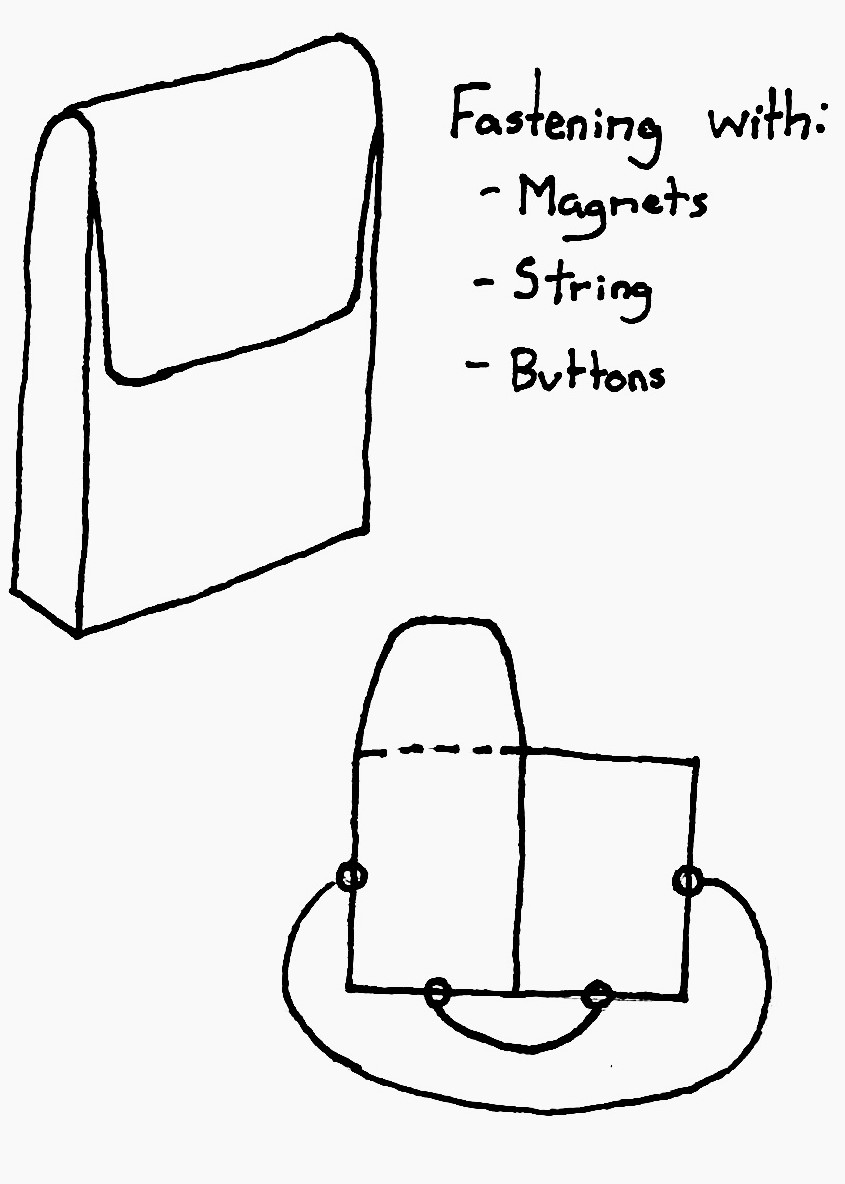 Fastening with:
- Magnets
- String
- Buttons